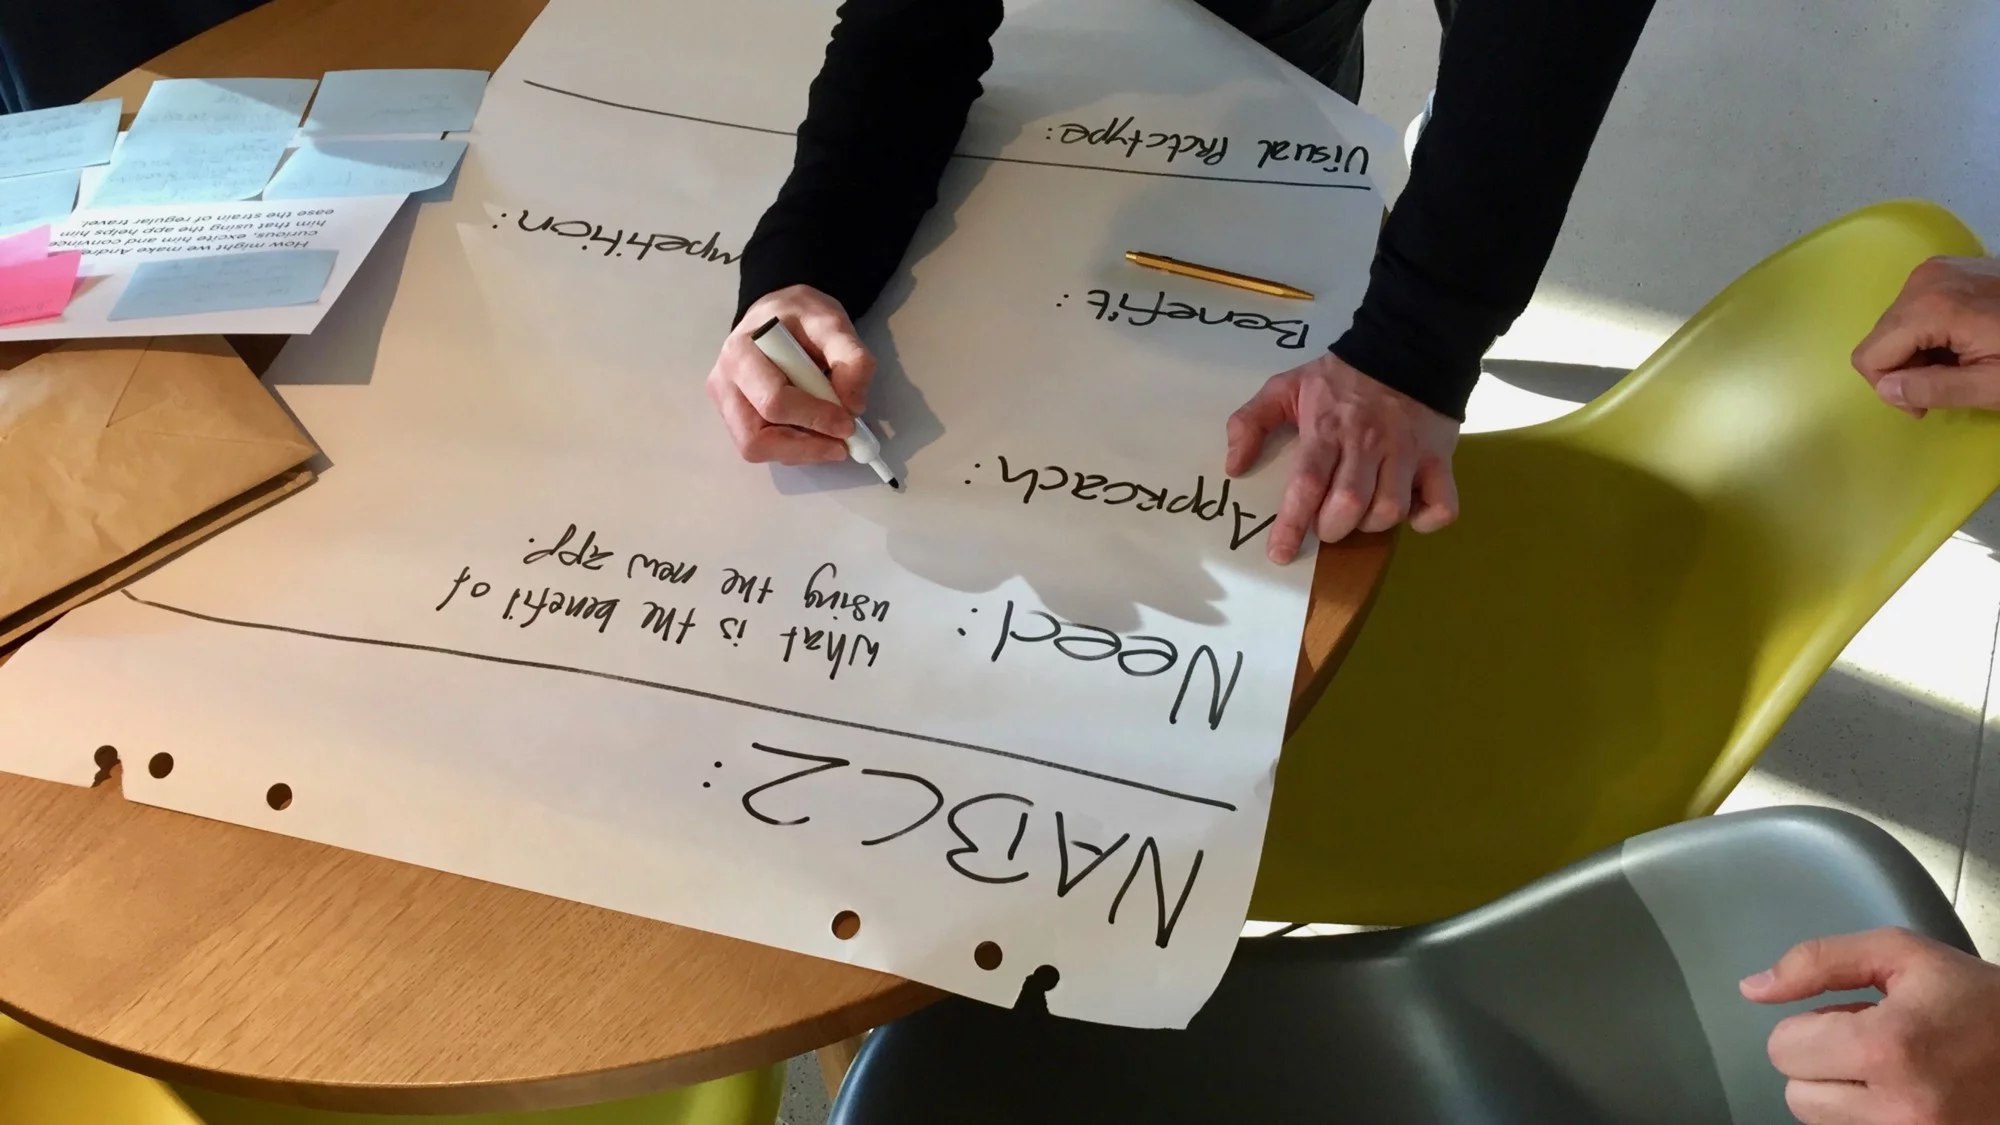 NABC2:
Need:
What is the benefit of
using the new app.
Approach:
Benefit:
mpetition:
Visual Prototype:
How might we make Andre
curious, excite him and convince
him that using the app helps him
ease the strain of regular travel.